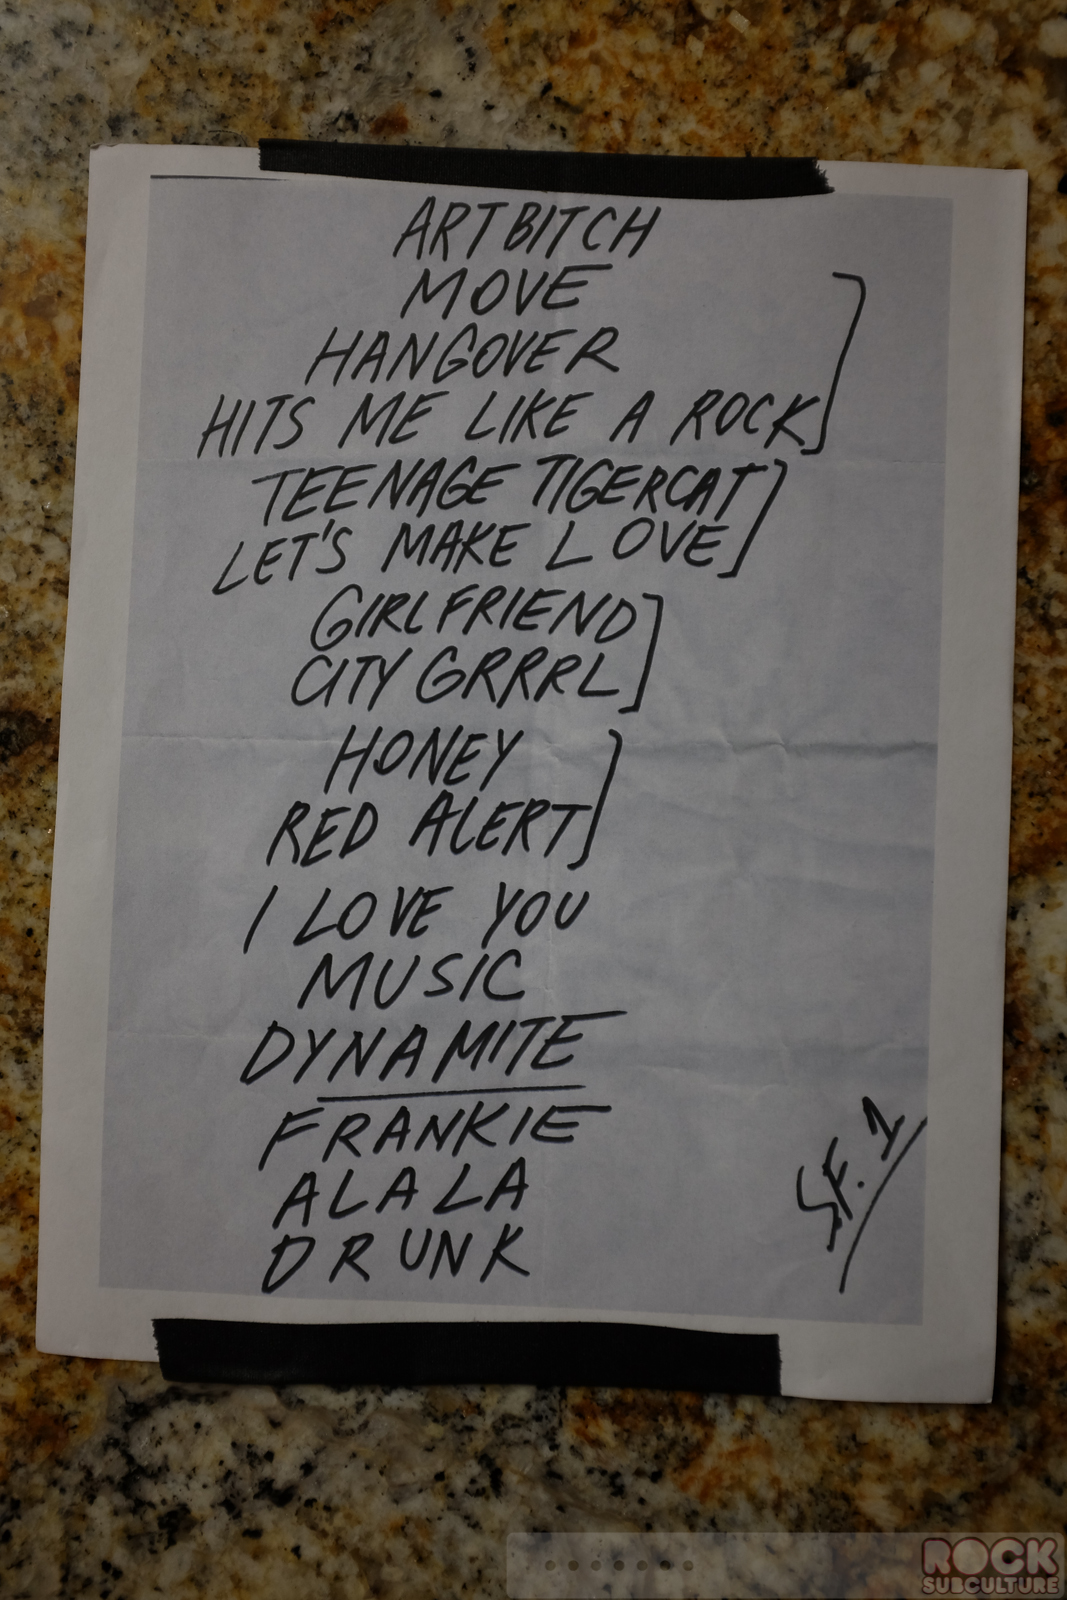 ARTBITCH
MOVE
HANGOVER
HITS ME LIKE A ROCK
TEENAGE TIGERCAT
LET'S MAKE LOVE
GIRLFRIEND
CITY GRRRL
HONEY
RED ALERT
I LOVE YOU
MUSIC
DYNAMITE
FRANKIE
ALALA
DRUNK
S.F. 1
ROCK
SUBCULTURE